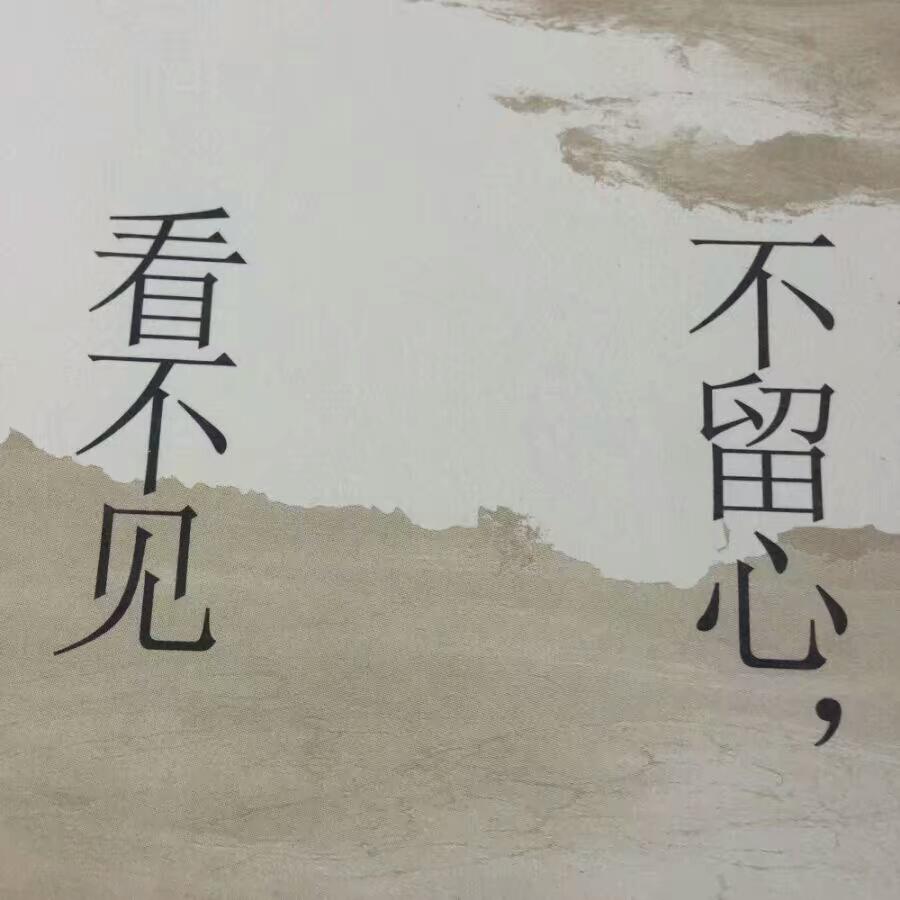 不留心，
看不见